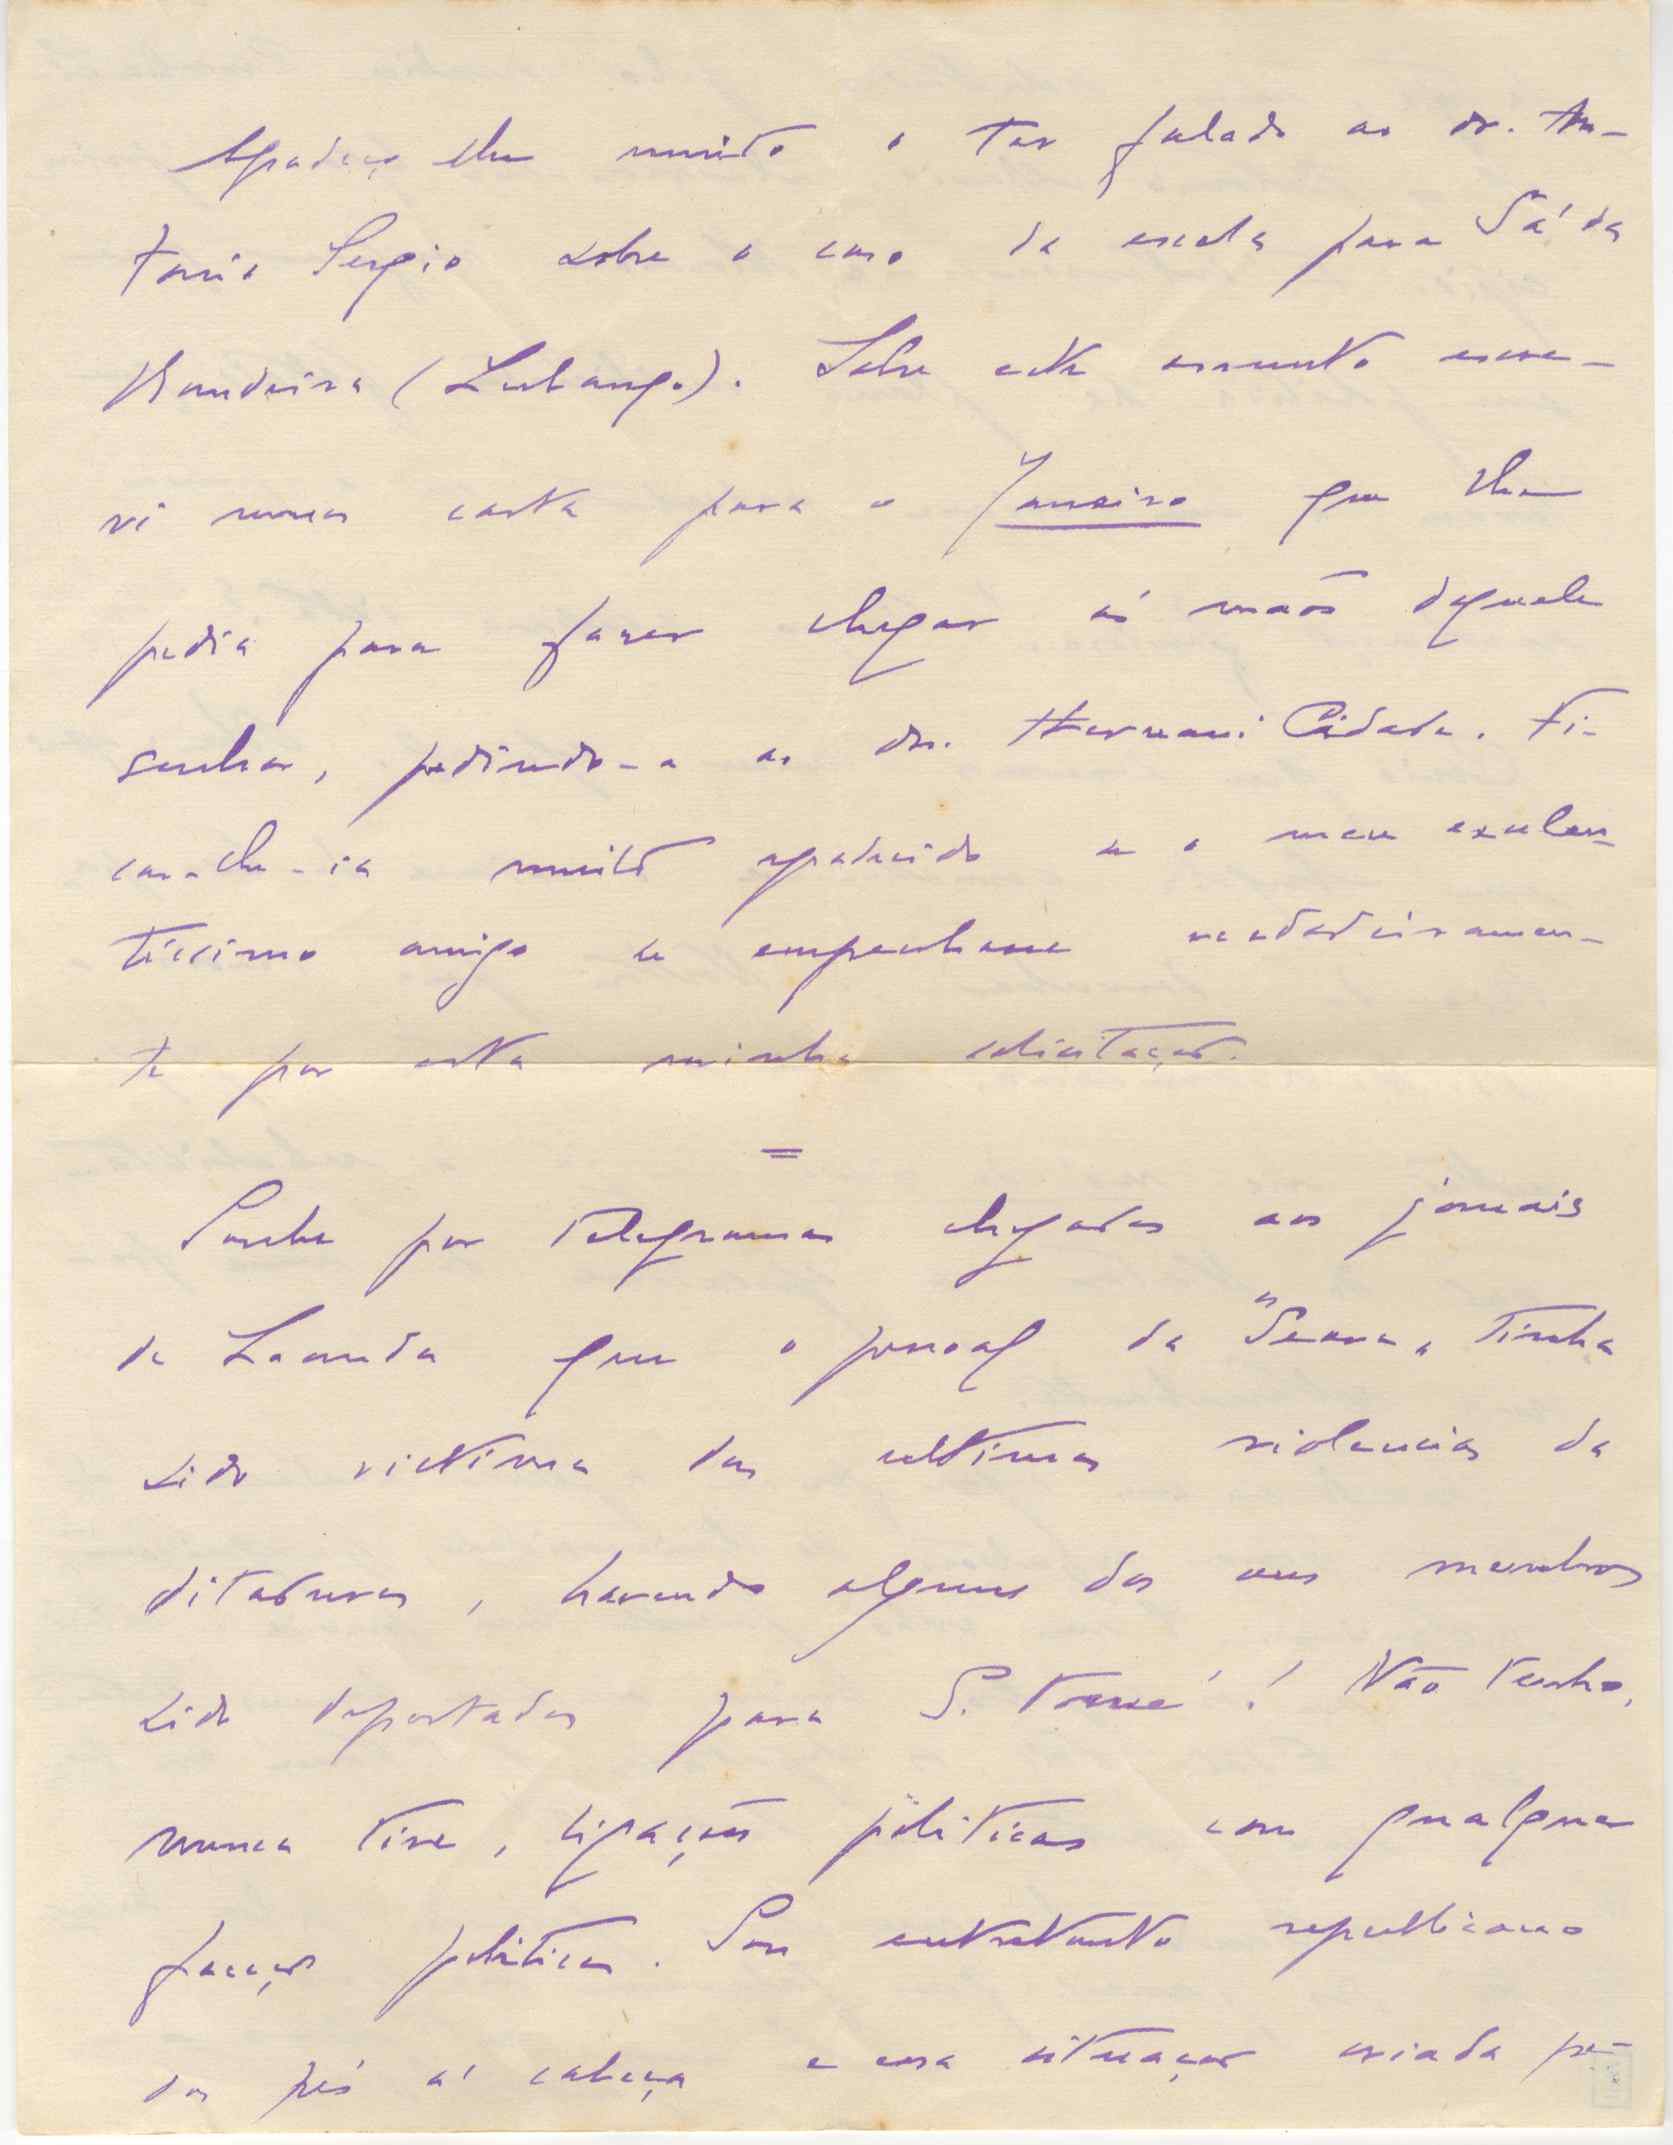 Agradeço lhe muito o ter falado ao dr. An-
tonio Sergio sobre o caso da escola para Sá da
Bandeira (Lubango). Sobre este assunto escre-
vi numa carta para o Janeiro que lhe
pedia para fazer chegar ás mãos daquele
senhor, pedindo-a ao dr. Hernani Cidade. Fi-
car-lhe-ia muito agradecido se o meu excelen-
tissimo amigo se empenhasse verdadeiramen-
te por esta minha solicitação.
=
Soube por telegramas chegados aos jornais
de Loanda que o pessoal da "Seara" tinha
sido victima das ultimas violencias da
ditadura, havendo alguns dos seus membros
sido deportados para S. Tomé! Não tenho,
nunca tive, ligações politicas com qualquer
facção politica. Sou entretanto republicano
dos pés á cabeça e essa situação criada pe-